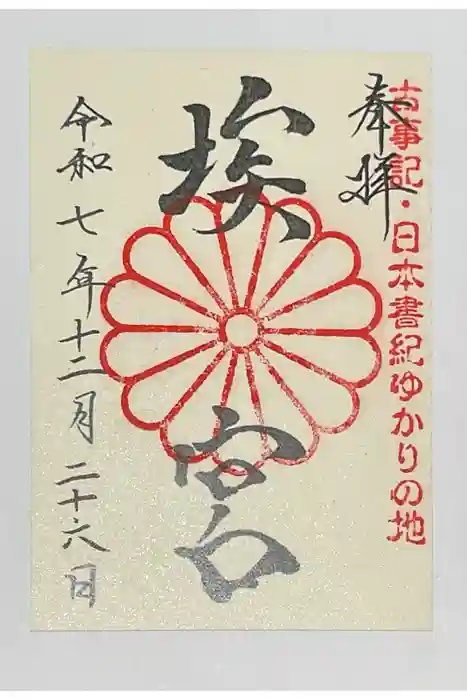 古事記・日本書紀ゆかりの地
奉拝
埃宮
令和七年十二月二十六日